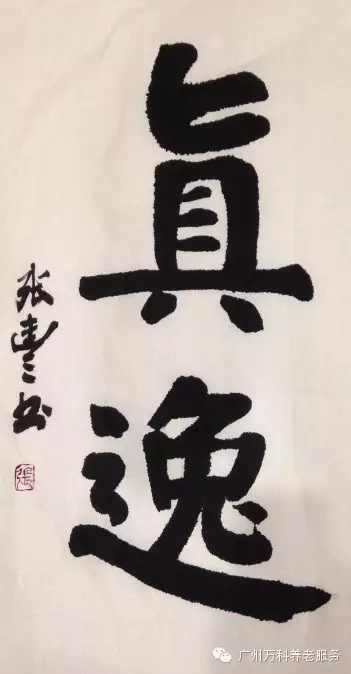 眞逸
张 书
張
广州万科养老服务